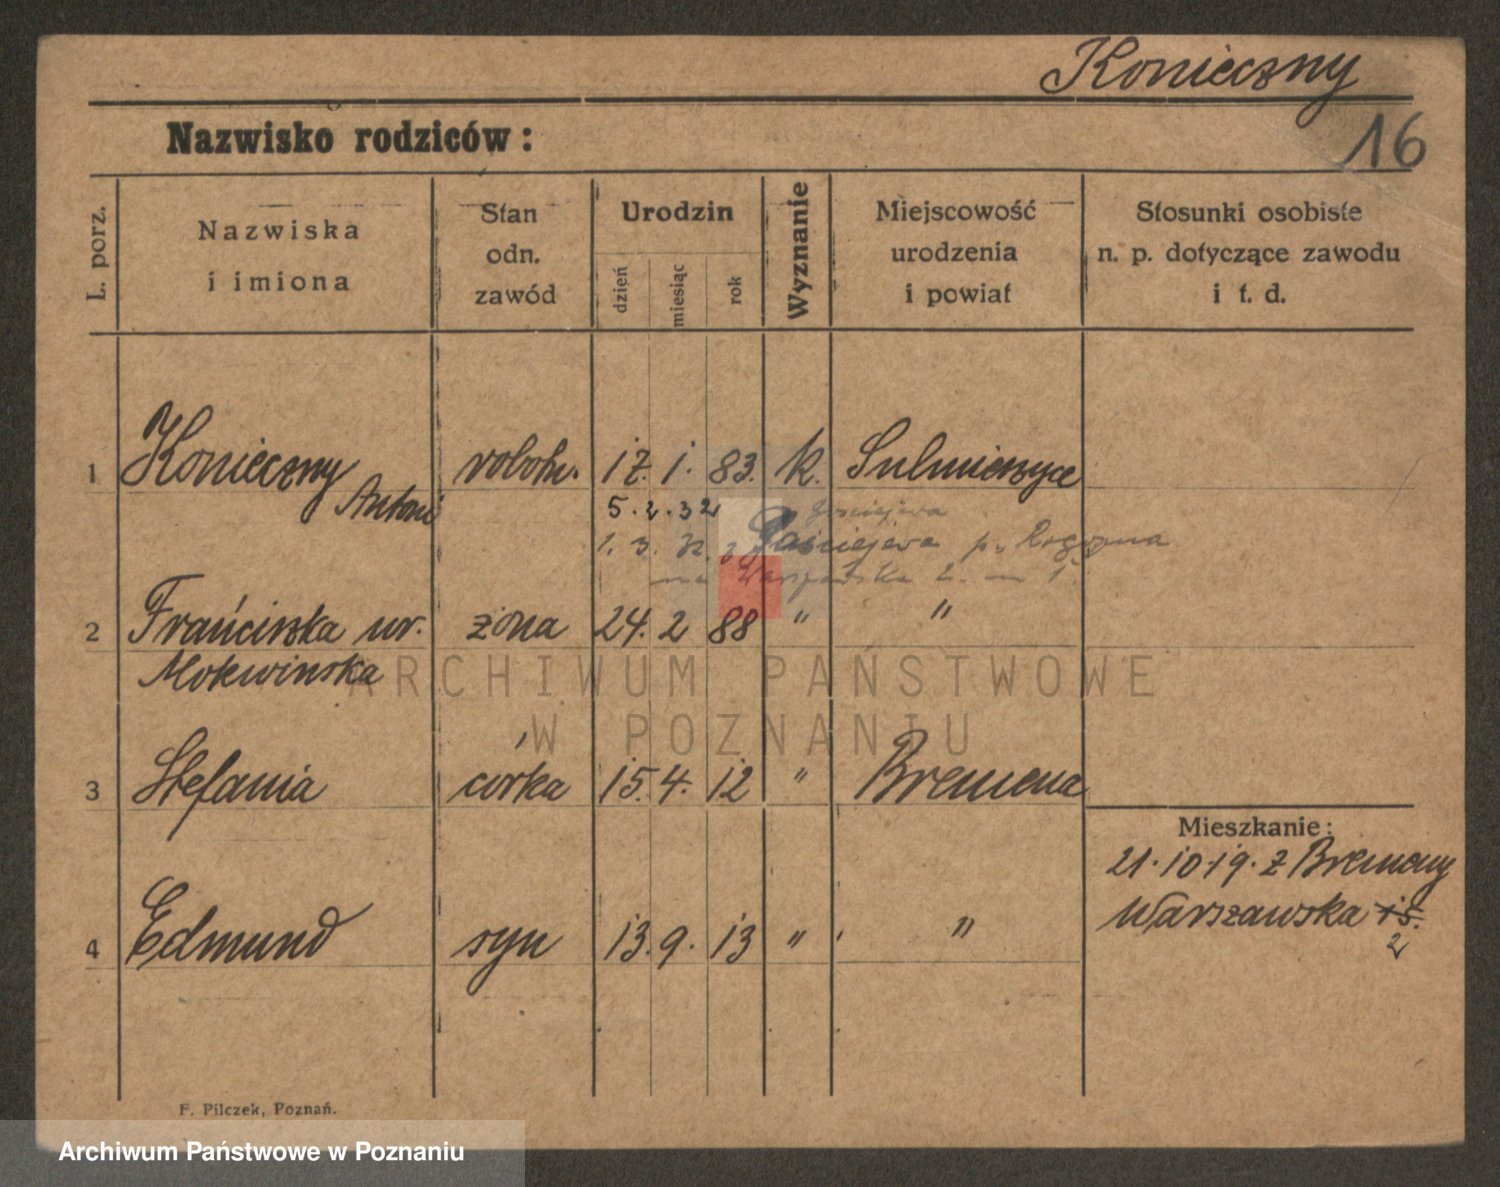 Konieczny
16
Nazwisko rodziców:
L. porz.
Nazwiska
i imiona
Stan
odn.
zawód
Urodzin
dzień
miesiąc
rok
Wyznanie
Miejscowość
urodzenia
i powiat
Stosunki osobiste
n. p. dotyczące zawodu
i t. d.
1 Konieczny robotn. 17. 1. 83. k. Sulmierzyce
Antoni
5. 2. 32
1. 3. 32. z p. Rogoźna
na Warszawska 2. m 1.
2 Franciszka ur. żona 24. 2 88 " "
ARCHIWUM PAŃSTWOWE
W POZNANIU
3 Stefania córka 15. 4. 12 " Bremena
Mieszkanie:
21. 10. 19. z Bremeny
Warszawska 15.
2
4 Edmund syn 13. 9. 13 " "
F. Pilczek, Poznań.
Archiwum Państwowe w Poznaniu